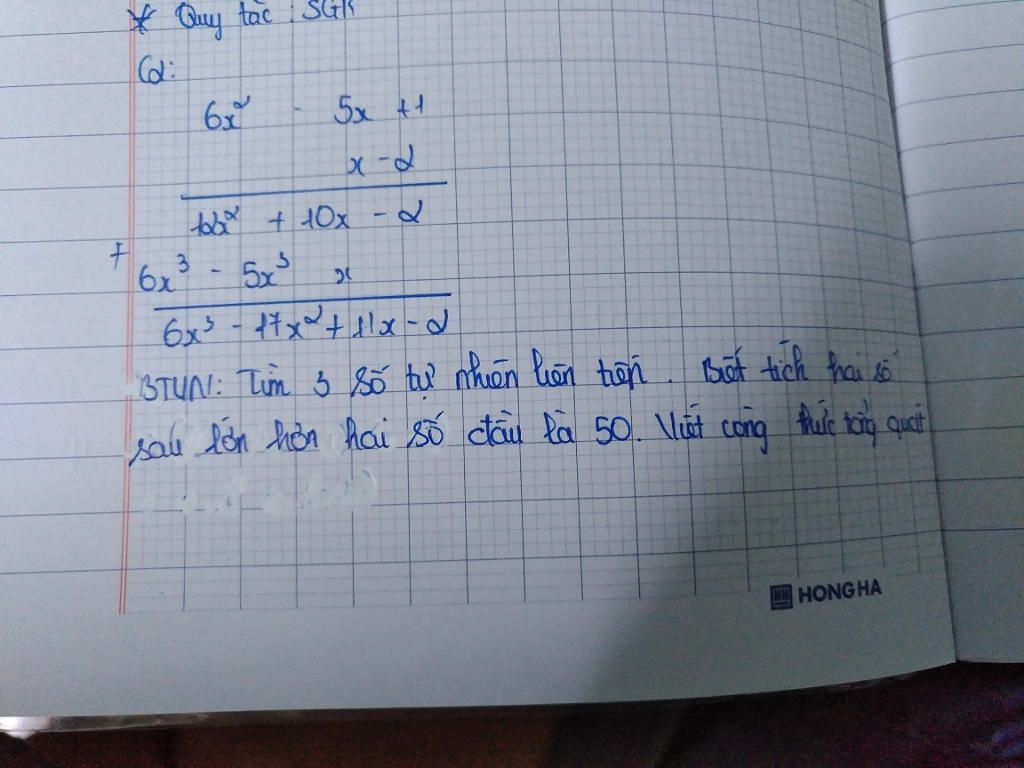 * Quy tắc : SGK
Cd:
6x² - 5x +1
x - 2
12x² + 10x - 2
+
6x³ - 5x³ x
6x³ - 17x² + 11x - 2
BTVN: Tìm 3 số tự nhiên liên tiếp. Biết tích hai số
sau lớn hơn hai số đầu là 50. Viết công thức tổng quát
HONG HA